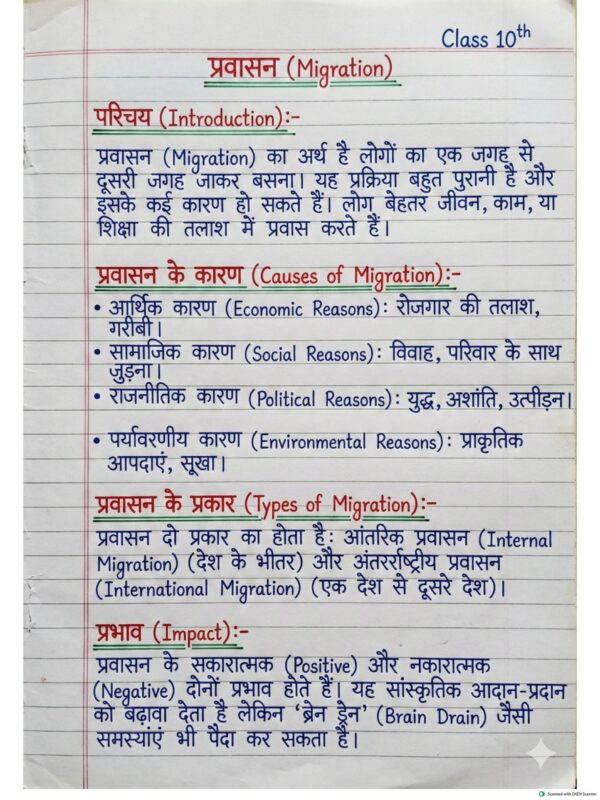 Class 10th
प्रवासन (Migration)
परिचय (Introduction):-
प्रवासन (Migration) का अर्थ है लोगों का एक जगह से
दूसरी जगह जाकर बसना। यह प्रक्रिया बहुत पुरानी है और
इसके कई कारण हो सकते हैं। लोग बेहतर जीवन, काम, या
शिक्षा की तलाश में प्रवास करते हैं।
प्रवासन के कारण (Causes of Migration):-
• आर्थिक कारण (Economic Reasons): रोजगार की तलाश,
गरीबी।
• सामाजिक कारण (Social Reasons): विवाह, परिवार के साथ
जुड़ना।
• राजनीतिक कारण (Political Reasons): युद्ध, अशांति, उत्पीड़न।
• पर्यावरणीय कारण (Environmental Reasons): प्राकृतिक
आपदाएं, सूखा।
प्रवासन के प्रकार (Types of Migration):-
प्रवासन दो प्रकार का होता है: आंतरिक प्रवासन (Internal
Migration) (देश के भीतर) और अंतरर्राष्ट्रीय प्रवासन
(International Migration) (एक देश से दूसरे देश)।
प्रभाव (Impact):-
प्रवासन के सकारात्मक (Positive) और नकारात्मक
(Negative) दोनों प्रभाव होते हैं। यह सांस्कृतिक आदान-प्रदान
को बढ़ावा देता है लेकिन 'ब्रेन ड्रेन' (Brain Drain) जैसी
समस्याएं भी पैदा कर सकता है।
Scanned with OKEN Scanner